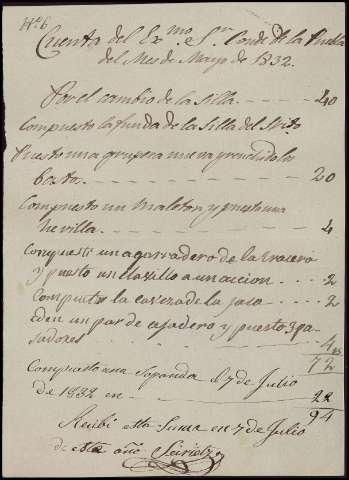 Nº 6
Cuenta del Exmo. Sr. Conde de la Puebla
del Mes de Mayo de 1832.
Por el cambio de la Silla 40
Compuesto la funda de la Silla del
Puesto una grupera nueva y rendido los
basto 20
Compuesto un Maleton y puesto una
hevilla 4
Compuesto un agarradero de la tracera
y puesto un clavillo a un accion 2
Compuesto la caveza de la jaca 2
un par de y puesto 3 pa
sadores 4
72
Compuesto una Sopanda el 7 de Julio
de 1832 en 22
94
Recibi esta Suma en 7 de Julio
de este año